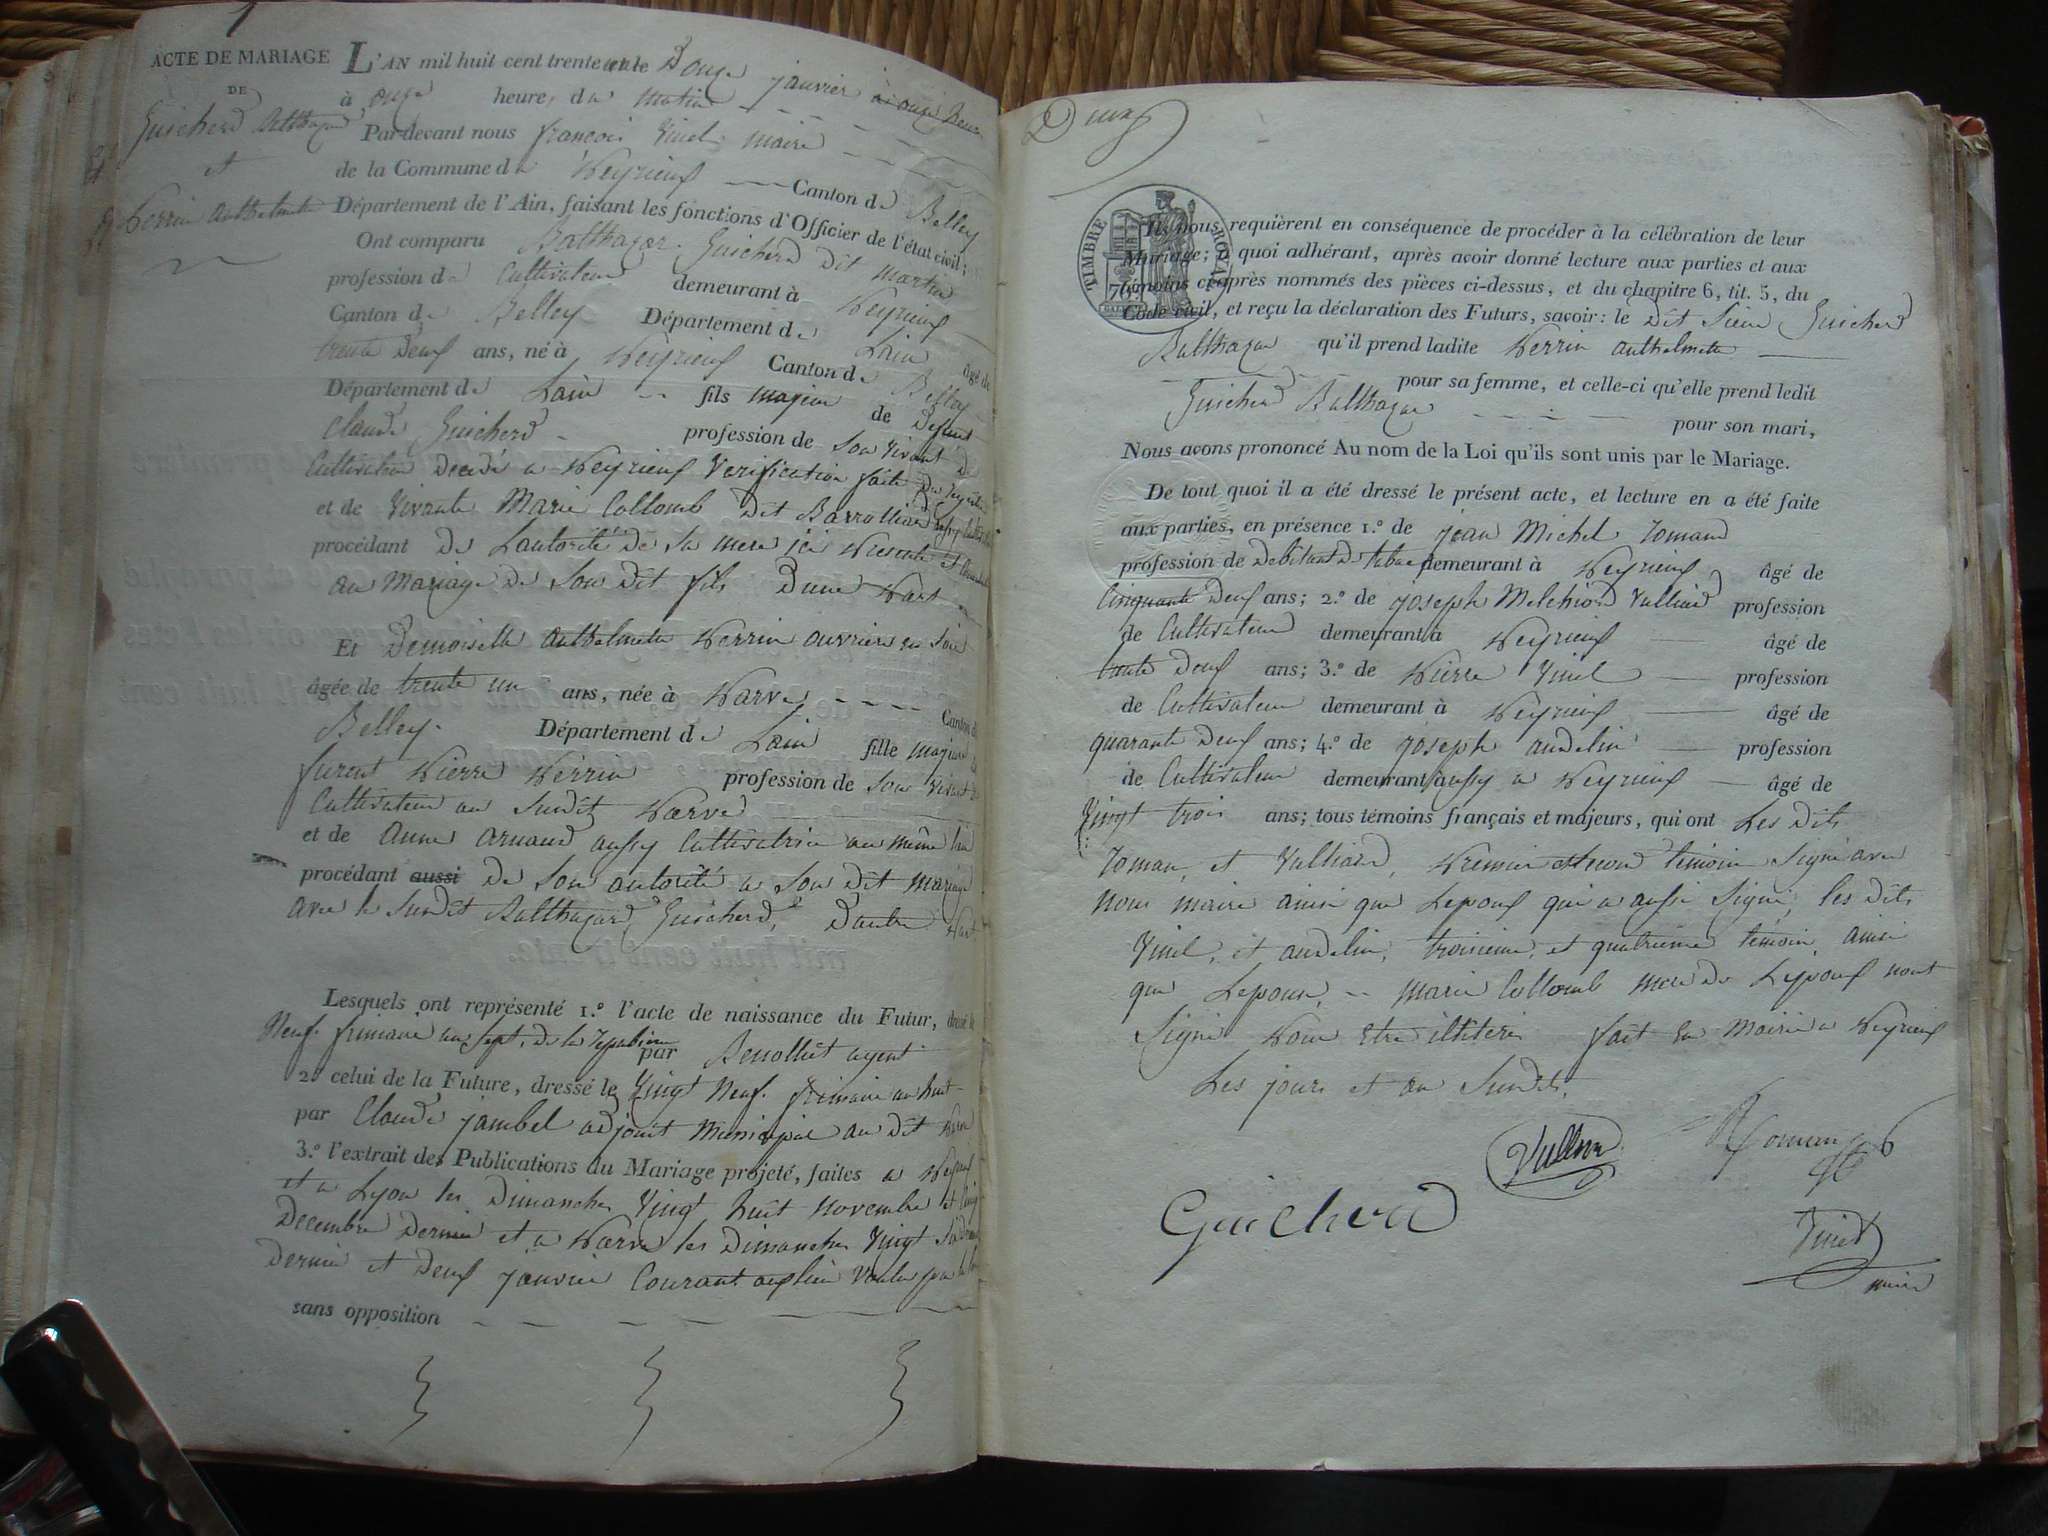 ACTE DE MARIAGE
DE
Guicherd Balthazard
et
Perrin anthelmette
L'AN mil huit cent trente et le Douze janvier à onze heure
à onze heure, du matin
Par devant nous françois Vinel maire
de la Commune de Peyrieux Canton de Belley
Département de l'Ain, faisant les fonctions d'Officier de l'état civil;
Ont comparu Balthazar Guicherd dit martin
profession de Cultivateur demeurant à Peyrieux
Canton de Belley Département de Lain âgé de
trente Deux ans, né à Peyrieux Canton de Belley
Département de Lain fils majeur de Defunt
Claude Guicherd profession de Son Vivant de
Cultivateur Decedé a Peyrieux Verification faite Du
et de Vivante Marie Collomb Dit
procédant De Lautorité de Sa mere ici Presente et
au Mariage de Son Dit fils Dune Part
Et Demoiselle anthelmette Perrin ouvriere en Soie
âgée de trente un ans, née à Parves Canton de
Belley Département de Lain fille majeure
furent Pierre Perrin profession de Son Vivant de
Cultivateur au Sundit Parve
et de Anne Arnaud aussy Cultivatrice au même lieu
procédant aussi De Son autorité a Son Dit mariage
avec le Sundit Balthazard Guicherd, Dautre Part
Lesquels ont représenté 1.º l'acte de naissance du Futur, dressé le
Neuf frimaire an Sept, de la Republique par Benollüt agent
2.º celui de la Future, dressé le Vingt Neuf frimaire an huit
par Claude jambel adjoint Municipal au dit Parve
3.º l'extrait des Publications du Mariage projeté, faites a Peyrieux
et a Lyon les Dimanches Vingt huit novembre et Cinq
Decembre Dernier et a Parve les Dimanches Vingt Six
Dernier et Deux janvier Courant
sans opposition
Deux
TIMBRE ROYAL
Ils nous requièrent en conséquence de procéder à la célébration de leur
Mariage; à quoi adhérant, après avoir donné lecture aux parties et aux
témoins ci-après nommés des pièces ci-dessus, et du chapitre 6, tit. 5, du
Code civil, et reçu la déclaration des Futurs, savoir: le dit Sieur Guicherd
Balthazar qu'il prend ladite Perrin anthelmette
pour sa femme, et celle-ci qu'elle prend ledit
Guicherd Balthazar pour son mari,
Nous avons prononcé Au nom de la Loi qu'ils sont unis par le Mariage.
De tout quoi il a été dressé le présent acte, et lecture en a été faite
aux parties, en présence 1.º de jean Michel Tomand
profession de Debitant De tabac demeurant à Peyrieux âgé de
Cinquante Deux ans; 2.º de joseph Melchiord Vulliod profession
de Cultivateur demeurant à Peyrieux âgé de
trente Deux ans; 3.º de Pierre Vinel profession
de Cultivateur demeurant à Peyrieux âgé de
quarante Deux ans; 4.º de joseph andelin profession
de Cultivateur demeurant aussy a Peyrieux âgé de
Vingt trois ans; tous témoins français et majeurs, qui ont Les Dits
Toman, et Vulliod, Premier et second temoin Signé avec
nous maire ainsi que Lepoux qui a aussi Signé, les dits
Vinel, et andelin, troisieme, et quatrieme temoin ainsi
que Lepouse, marie Collomb mere de Lepoux nont
Signé Pour Etre illiteré fait En Mairie a Peyrieux
Les jours et an Sundit.
Guicherd
Vinel
maire